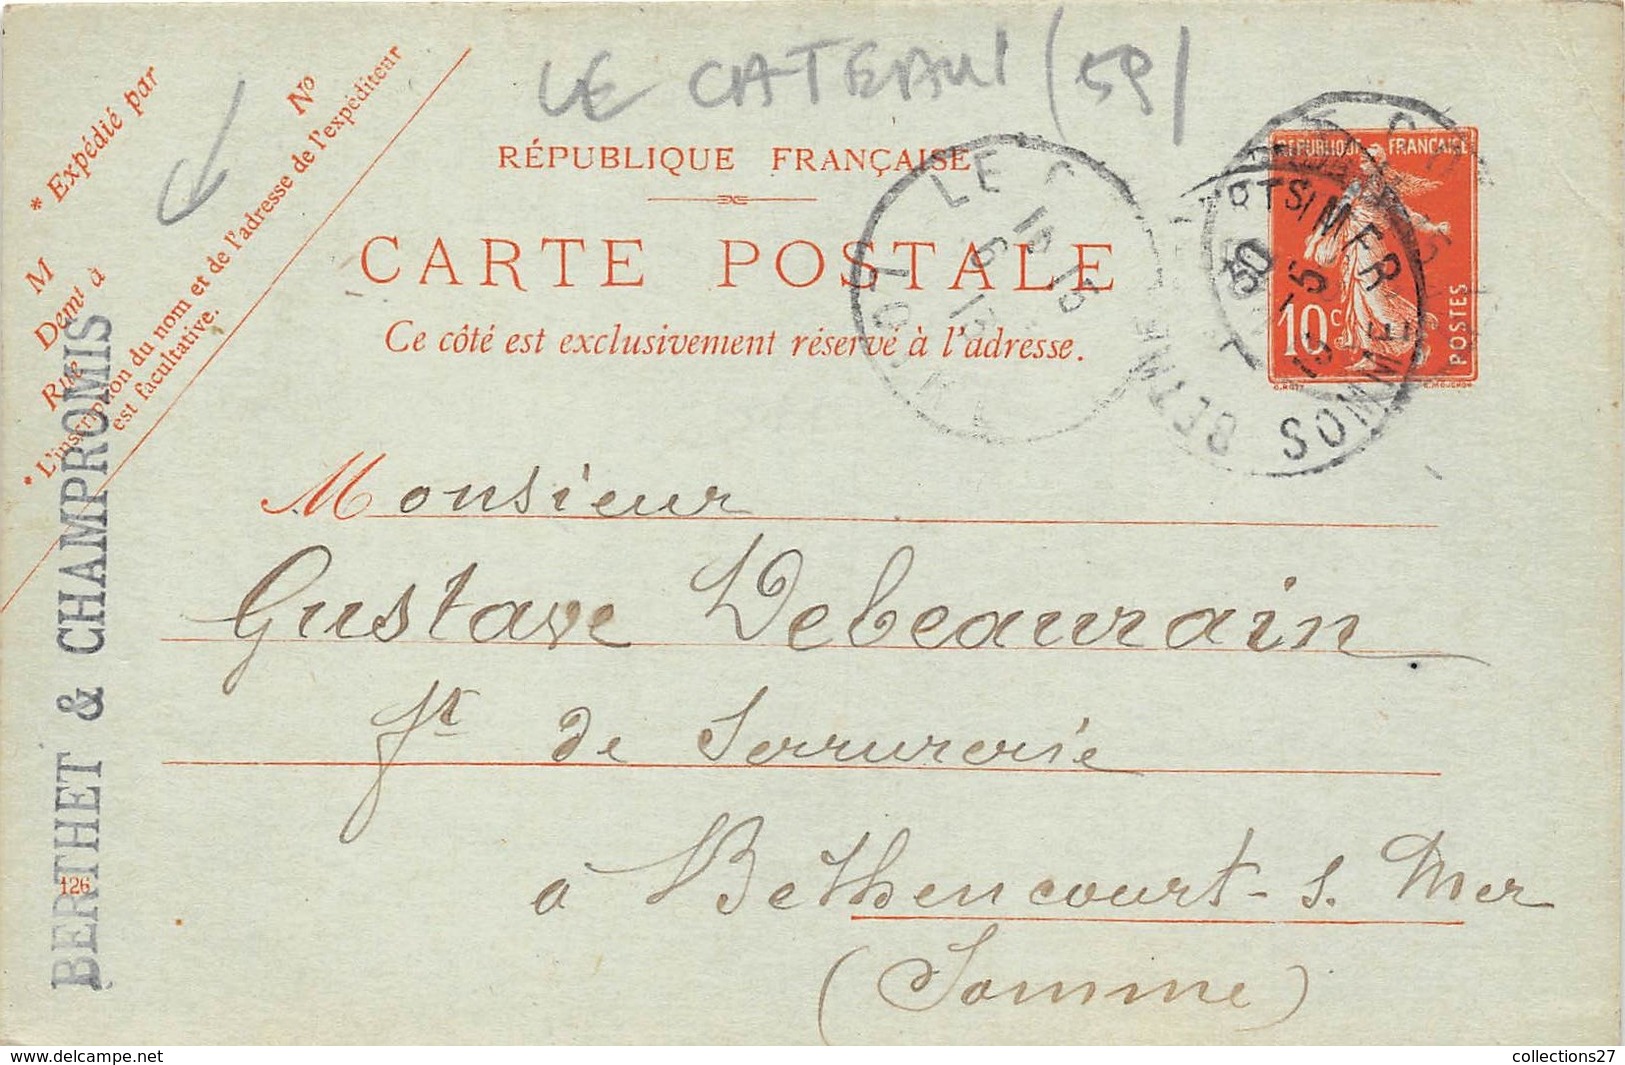 LE CATEAU (59)
* Expédié par
M
Demt à
Rue
No
* L'inscription du nom et de l'adresse de l'expéditeur
est facultative.
RÉPUBLIQUE FRANÇAISE
CARTE POSTALE
Ce côté est exclusivement réservé à l'adresse.
RÉPUBLIQUE FRANÇAISE
10 c
POSTES
LE C
16 15
5
13
NORD
SOMME
Monsieur
Gustave Debeaurain
ft de Serrurerie
à Bethencourt-s. Mer
(Somme)
BERTHET & CHAMPROMIS
126
collections27